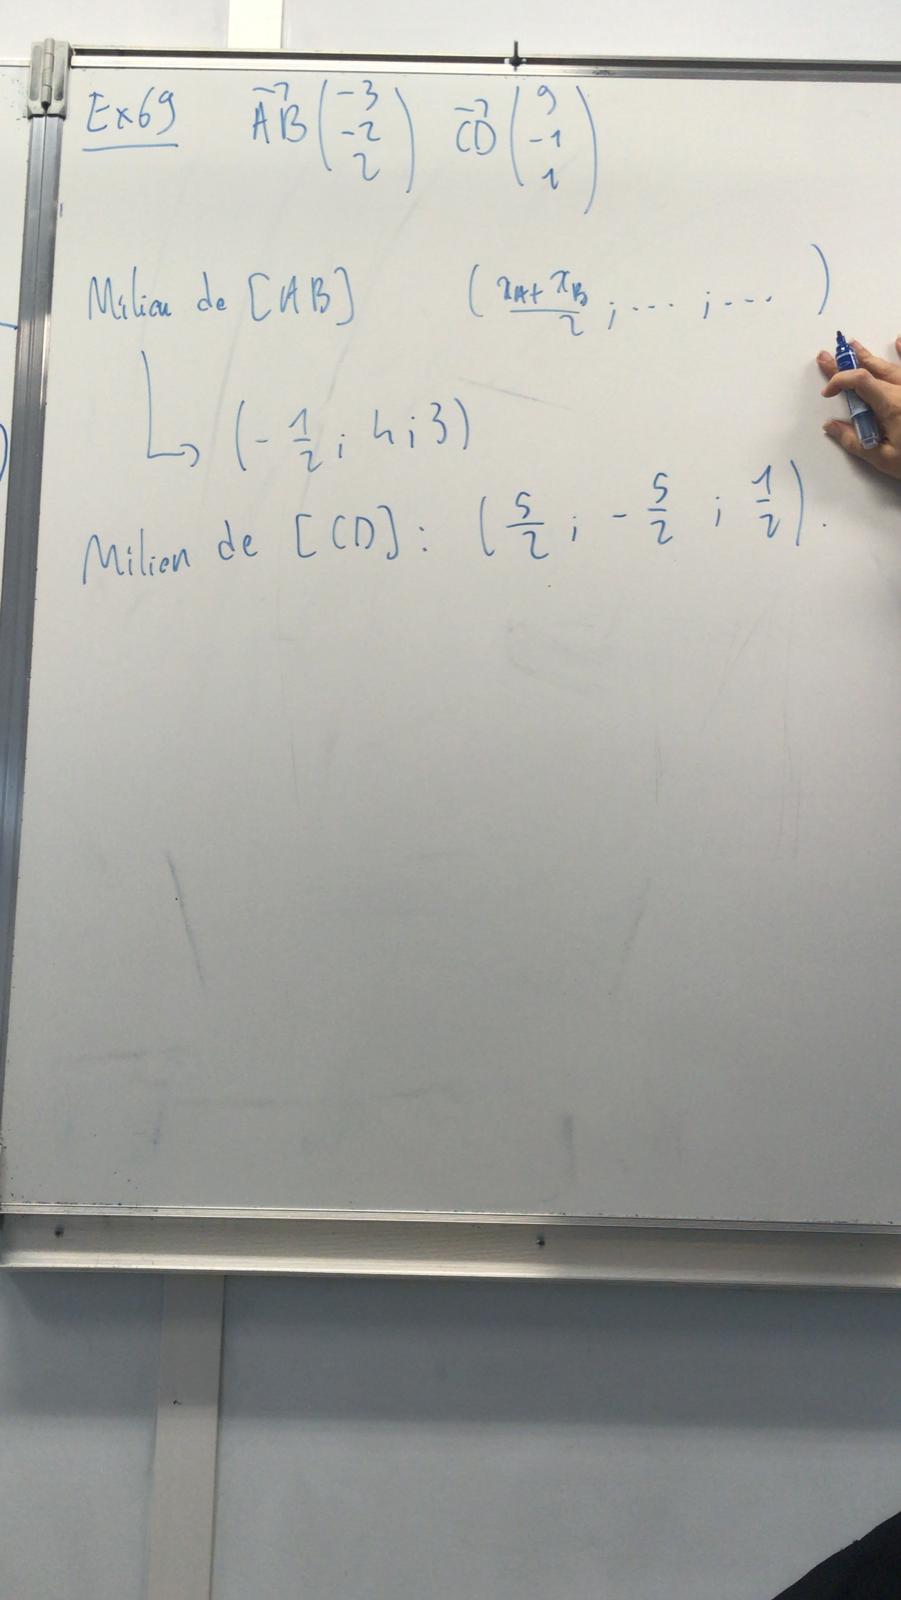 Ex69 AB→ (-3 -2 2) CD→ (9 -1 1)
Milieu de [AB] (xA + xB / 2 ; ... ; ... )
↳ (- 1/2 ; 4 ; 3)
Milieu de [CD] : (5/2 ; - 5/2 ; 1/2).